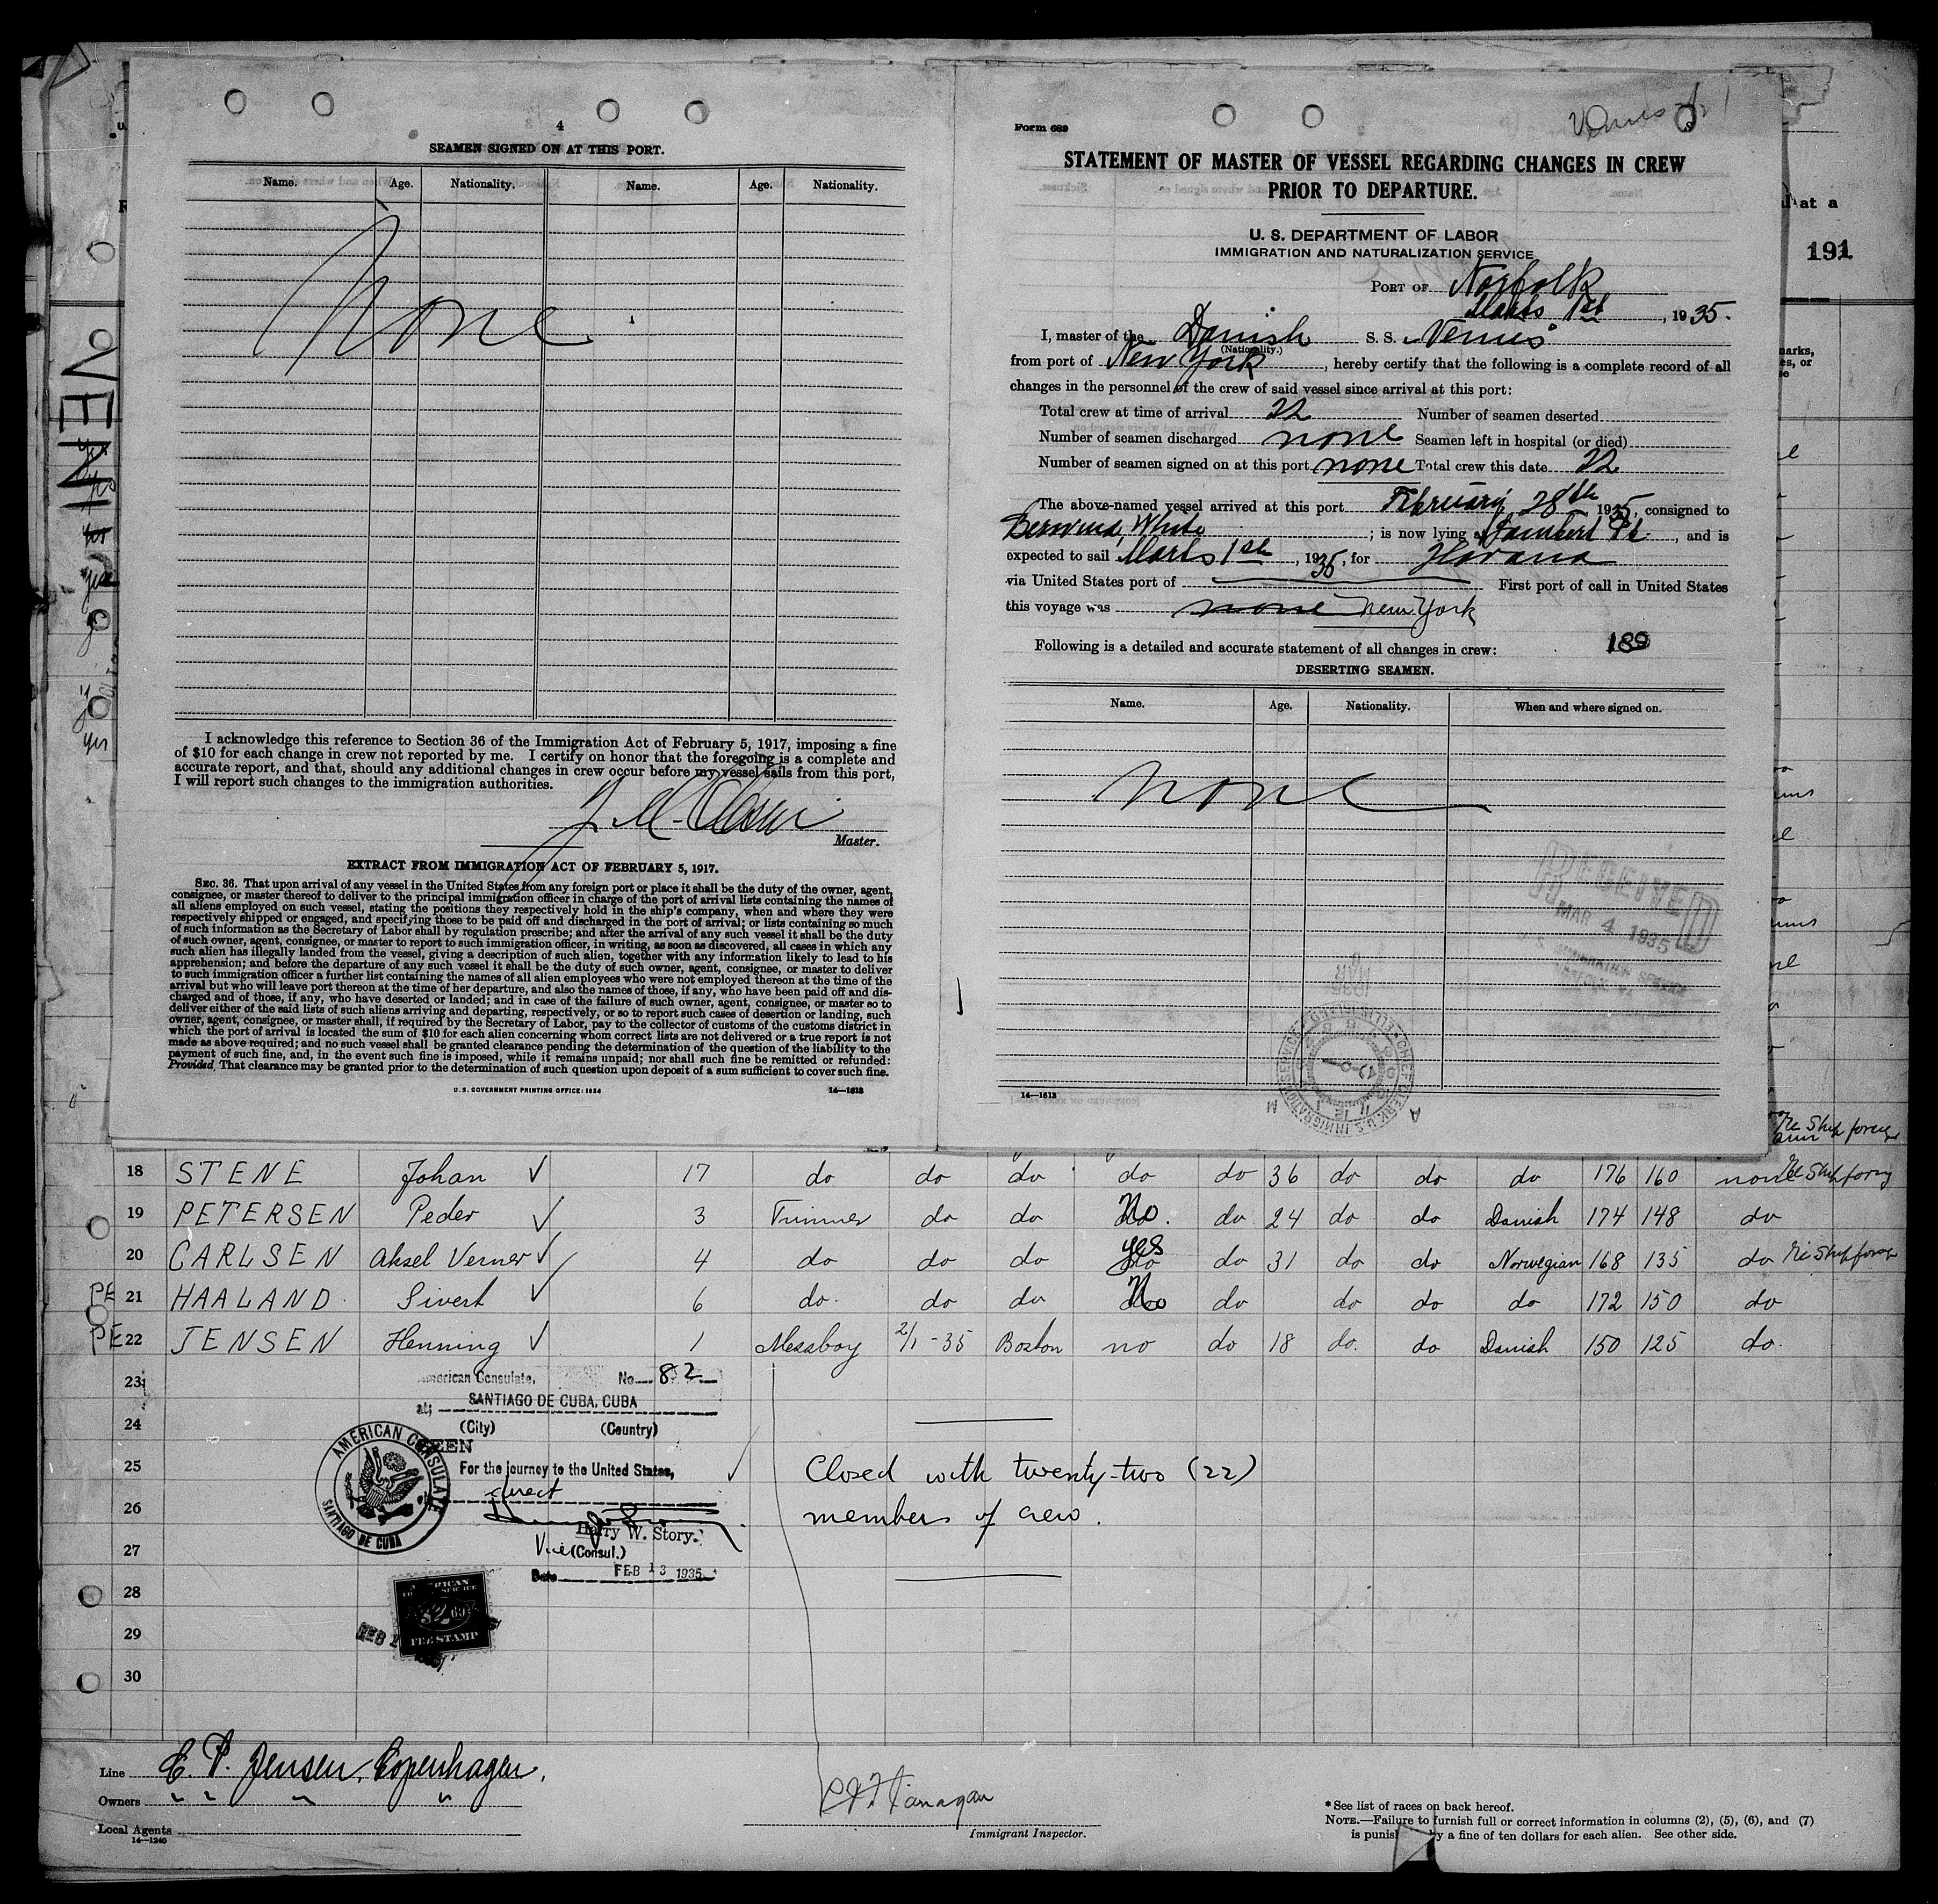 4
SEAMEN SIGNED ON AT THIS PORT.
Name. Age. Nationality. Name. Age. Nationality.
None
I acknowledge this reference to Section 36 of the Immigration Act of February 5, 1917, imposing a fine
of $10 for each change in crew not reported by me. I certify on honor that the foregoing is a complete and
accurate report, and that, should any additional changes in crew occur before my vessel sails from this port,
I will report such changes to the immigration authorities.
Master.
EXTRACT FROM IMMIGRATION ACT OF FEBRUARY 5, 1917.
SEC. 36. That upon arrival of any vessel in the United States from any foreign port or place it shall be the duty of the owner, agent,
consignee, or master thereof to deliver to the principal immigration officer in charge of the port of arrival lists containing the names of
all aliens employed on such vessel, stating the positions they respectively hold in the ship's company, when and where they were
respectively shipped or engaged, and specifying those to be paid off and discharged in the port of arrival; or lists containing so much
of such information as the Secretary of Labor shall by regulation prescribe; and after the arrival of any such vessel it shall be the duty
of such owner, agent, consignee, or master to report to such immigration officer, in writing, as soon as discovered, all cases in which any
such alien has illegally landed from the vessel, giving a description of such alien, together with any information likely to lead to his
apprehension; and before the departure of any such vessel it shall be the duty of such owner, agent, consignee, or master to deliver
to such immigration officer a further list containing the names of all alien employees who were not employed thereon at the time of the
arrival but who will leave port thereon at the time of her departure, and also the names of those, if any, who have been paid off and dis-
charged and of those, if any, who have deserted or landed; and in case of the failure of such owner, agent, consignee, or master so to
deliver either of the said lists of such aliens arriving and departing, respectively, or so to report such cases of desertion or landing, such
owner, agent, consignee, or master shall, if required by the Secretary of Labor, pay to the collector of customs of the customs district in
which the port of arrival is located the sum of $10 for each alien concerning whom correct lists are not delivered or a true report is not
made as above required; and no such vessel shall be granted clearance pending the determination of the question of the liability to the
payment of such fine, and, in the event such fine is imposed, while it remains unpaid; nor shall such fine be remitted or refunded:
Provided, That clearance may be granted prior to the determination of such question upon deposit of a sum sufficient to cover such fine.
U. S. GOVERNMENT PRINTING OFFICE: 1934 14—1613
Form 689
Venus
STATEMENT OF MASTER OF VESSEL REGARDING CHANGES IN CREW
PRIOR TO DEPARTURE.
U. S. DEPARTMENT OF LABOR
IMMIGRATION AND NATURALIZATION SERVICE
PORT OF Norfolk
Marts 1st, 1935.
I, master of the Danish S. S. "Venus"
(Nationality.)
from port of New York, hereby certify that the following is a complete record of all
changes in the personnel of the crew of said vessel since arrival at this port:
Total crew at time of arrival 22 Number of seamen deserted
Number of seamen discharged none Seamen left in hospital (or died)
Number of seamen signed on at this port none Total crew this date 22
The above-named vessel arrived at this port February 28th 1935, consigned to
Berwind, White; is now lying at Lambert Pt., and is
expected to sail Marts 1st, 1935, for Havana
via United States port of First port of call in United States
this voyage was none New York
Following is a detailed and accurate statement of all changes in crew: 189
DESERTING SEAMEN.
Name. Age. Nationality. When and where signed on.
none
RECEIVED
MAR 4 1935
14—1613
at a
191
VENUS
18 STENE Johan ✓ 17 do do do do do 36 do do do 176 160 none Re Ship foreig
19 PETERSEN Peder ✓ 3 Trimmer do do No do 24 do do Danish 174 148 do
20 CARLSEN Aksel Verner ✓ 4 do do do yes do 31 do do Norwegian 168 135 do Re Ship foreig
21 HAALAND Sivert ✓ 6 do do do No do do do do 172 150 do
22 JENSEN Henning ✓ 1 Messboy 2/1-35 Boston no do 18 do. do Danish 150 125 do.
23
24
25
26
27
28
29
30
American Consulate, No. 82
at; SANTIAGO DE CUBA, CUBA
(City) (Country)
SEEN
For the journey to the United States,
direct
Harry W. Story.
Vice (Consul.)
Date FEB 13 1935
AMERICAN CONSULATE
SANTIAGO DE CUBA
FEE STAMP
Closed with twenty-two (22)
members of crew.
Line E. P. Jensen, Copenhagen,
Owners " " " "
Local Agents
14—1240
Immigrant Inspector.
* See list of races on back hereof.
NOTE.—Failure to furnish full or correct information in columns (2), (5), (6), and (7)
is punishable by a fine of ten dollars for each alien. See other side.